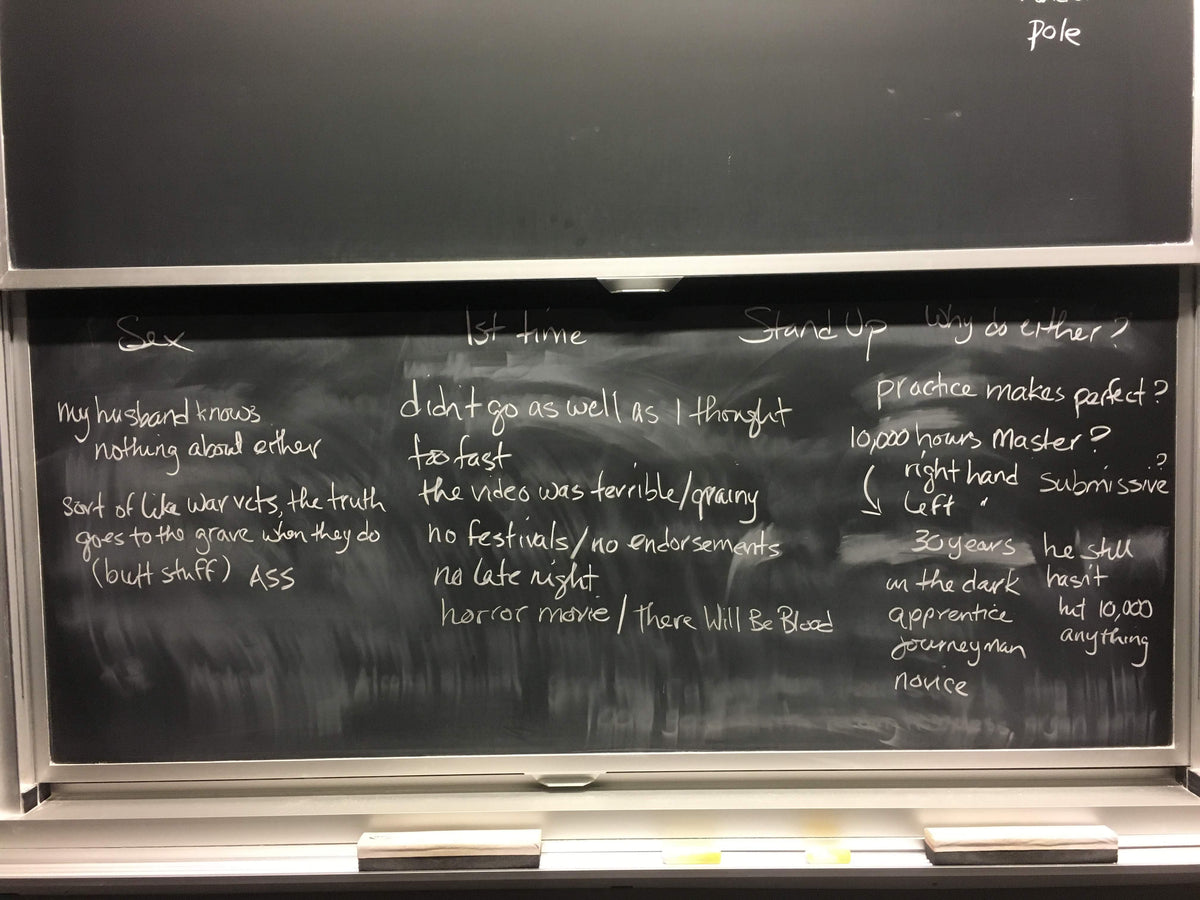 pole
Sex
my husband knows
nothing about either
sort of like war vets, the truth
goes to the grave when they do
(butt stuff) ASS
1st time
didn't go as well as I thought
too fast
the video was terrible/grainy
no festivals/no endorsements
no late night
horror movie/There Will Be Blood
Stand Up Why do either?
practice makes perfect?
10,000 hours Master?
right hand submissive?
left "
30 years he still
in the dark hasn't
apprentice hit 10,000
journeyman anything
novice